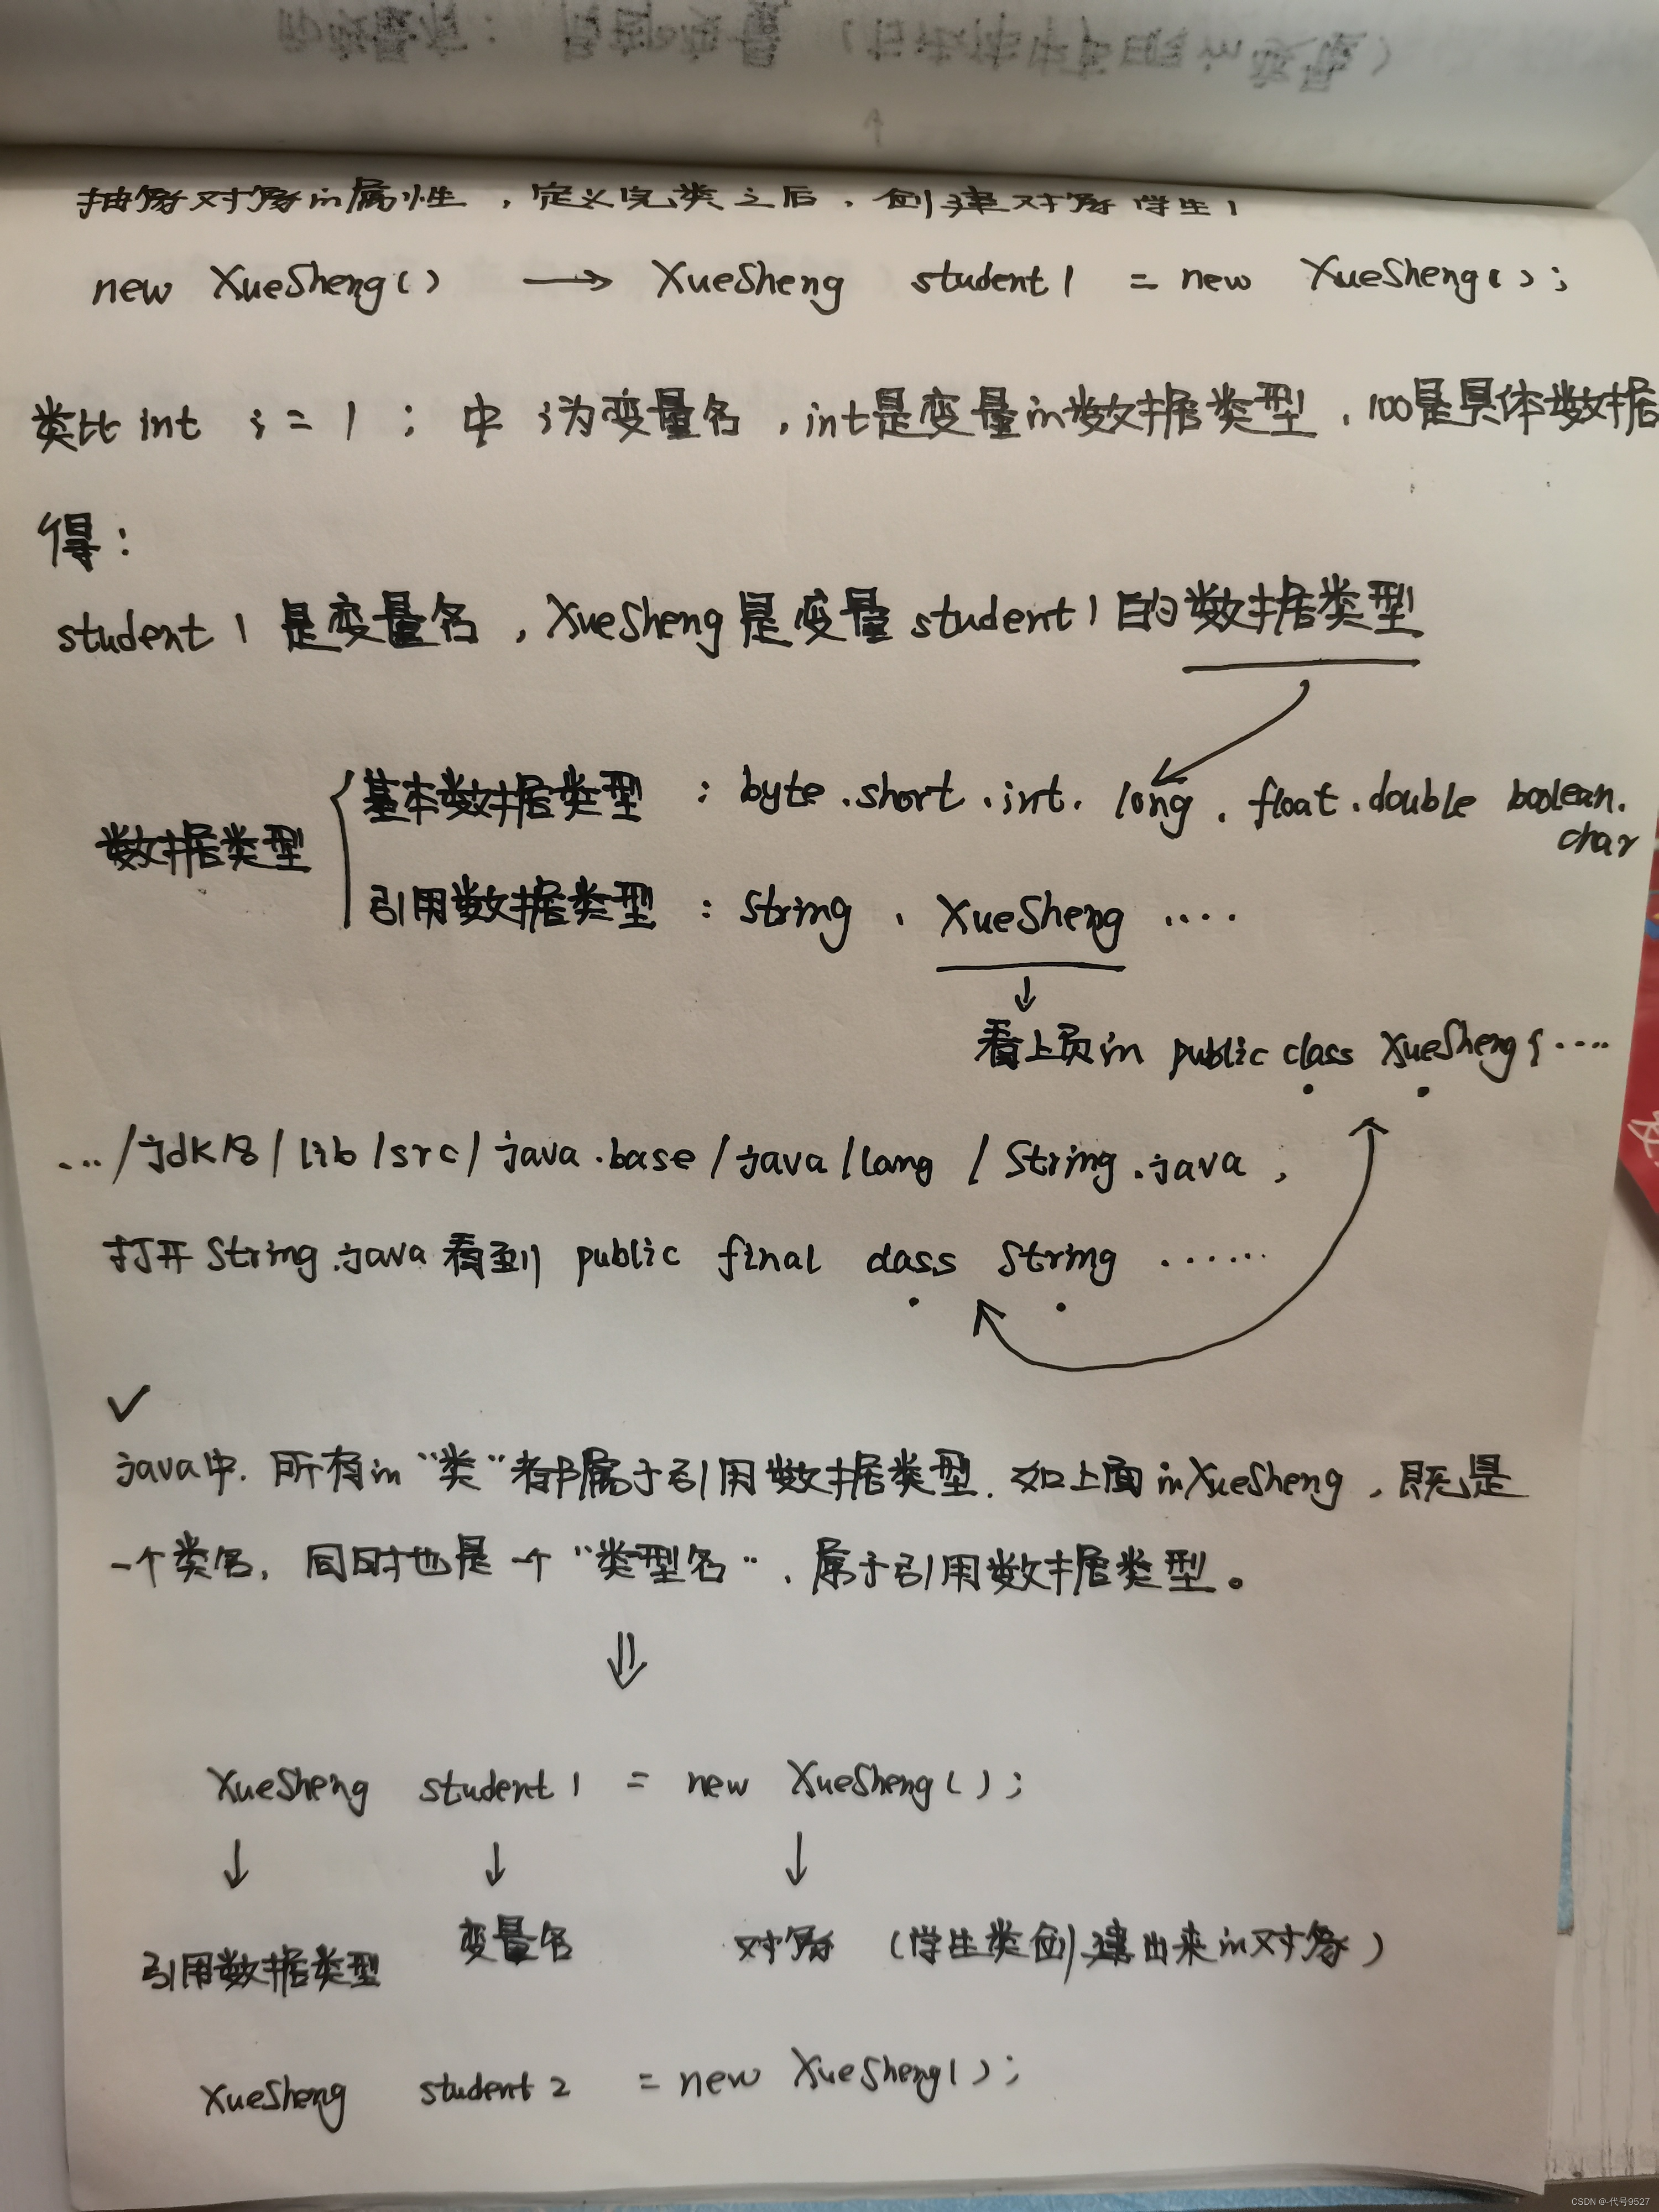 抽象对象in属性，定义完类之后，创建对象学生1
new XueSheng() → XueSheng student1 = new XueSheng();
类比int i = 1 ; 中 i为变量名，int是变量in数据类型，100是具体数据
得：
student1是变量名，XueSheng是变量student1的数据类型
数据类型
基本数据类型：byte.short.int.long.float.double boolean.
char
引用数据类型：String、XueSheng ....
看上页in public class XueSheng{....
.../jdk18/lib/src/java.base/java/lang/String.java，
打开String.java看到 public final class String ......
✓
java中.所有in“类”都属于引用数据类型.如上面inXueSheng，既是
一个类名，同时也是一个“类型名”，属于引用数据类型。
⇓
XueSheng student1 = new XueSheng();
↓ ↓ ↓
引用数据类型 变量名 对象（学生类创建出来in对象）
XueSheng student2 = new XueSheng();
CSDN @-代号9527